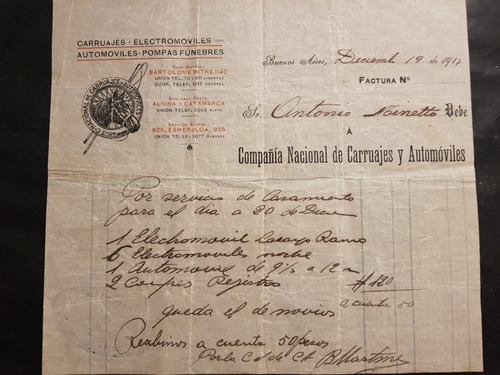 CARRUAJES - ELECTROMOVILES
AUTOMOVILES - POMPAS FÚNEBRES
CASA MATRIZ
BARTOLOME MITRE 1140
UNION TEL. 701 LIBERTAD
COOP. TELEF. 1011 CENTRAL
SUCURSAL OESTE
ALSINA Y CATAMARCA
UNION TELEF. MITRE
SECCION
825, ESMERALDA, 825
UNION TELEF. 3677
Buenos Aires, Dicieml 19 de 1914
FACTURA Nº
Sr. Antonio Debe
A
Compañía Nacional de Carruajes y Automóviles
Por servicio de Casamiento
para el dia a 20 de Dice
1 Electromovil Lacayo Ramo
6 Electromoviles noche
1 Automovil de 9½ a 12
2 Coupés Registro $120
a cuenta 50
queda el de novios
Recibimos a cuenta 50 pesos
Por la Cª de Cª B Martinez